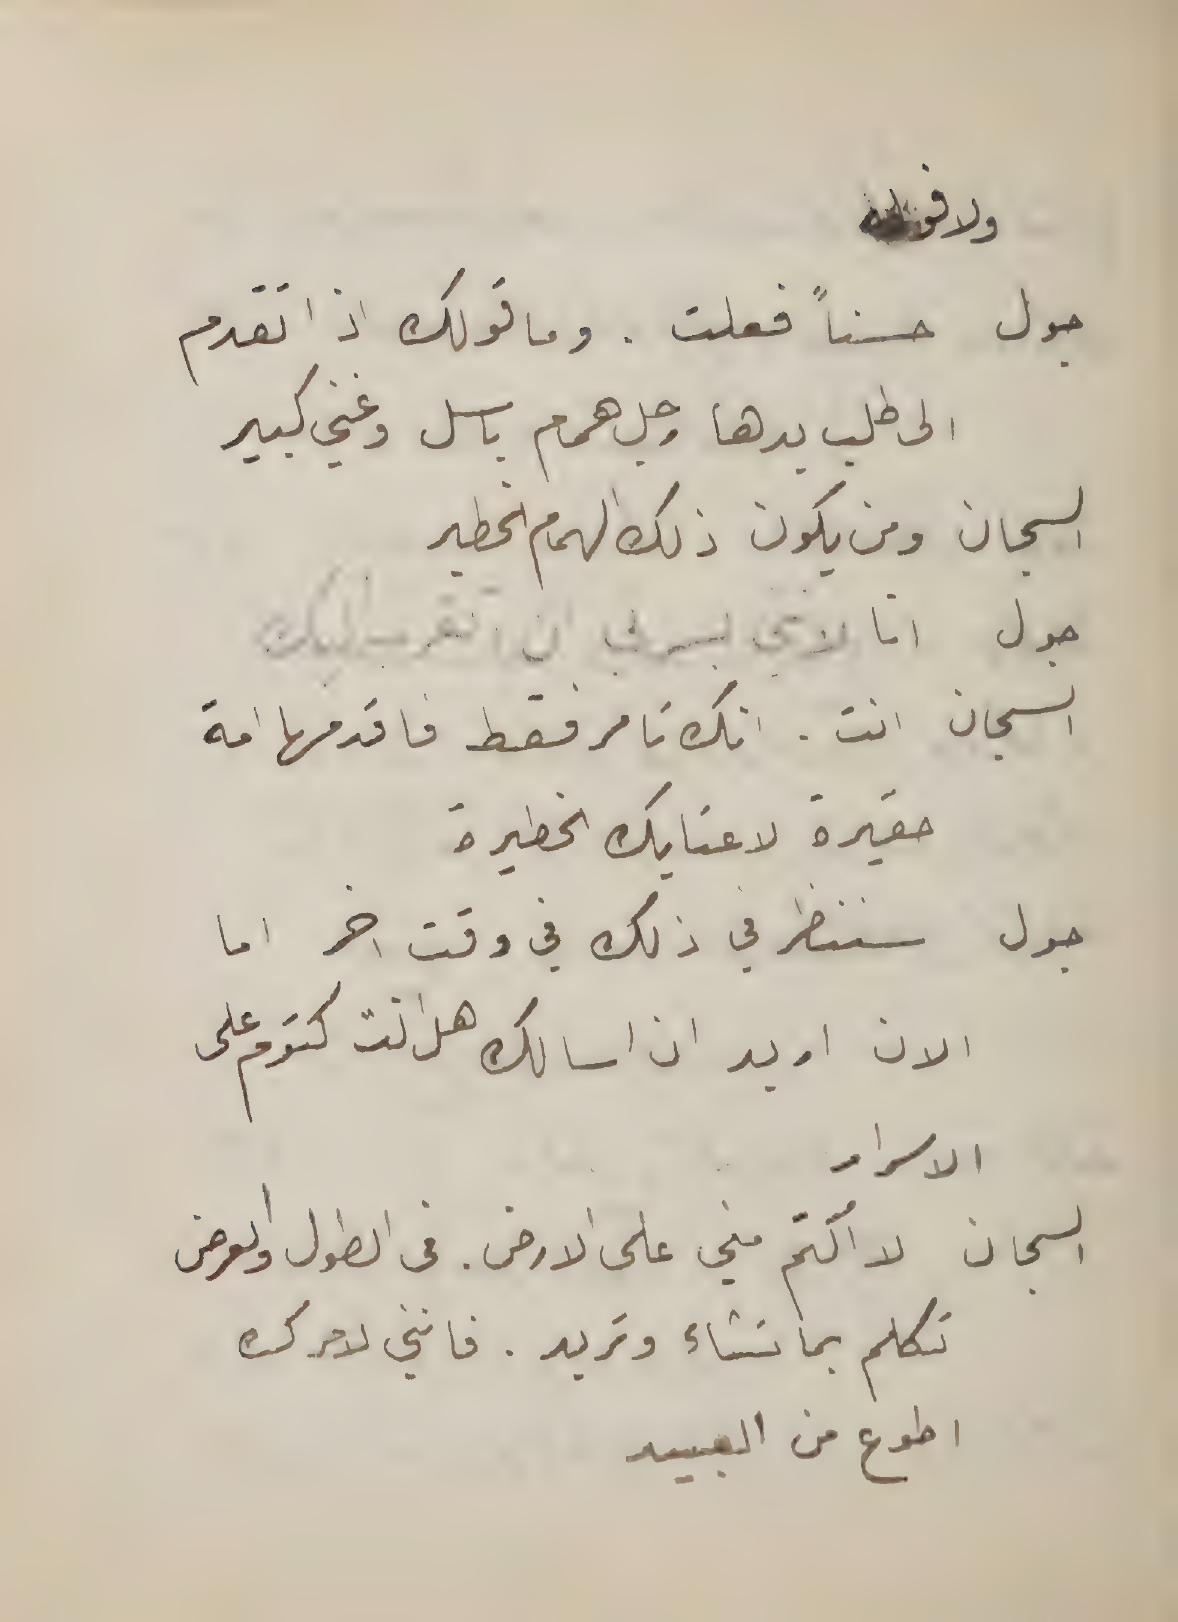 ولا قوة
جول حسناً فعلت . وما قولك اذا تقدم
الى طلب يدها رجل همام باسل وغني كبير
السجان ومن يكون ذلك الهمام الخطير
جول انا لانني يسرني ان اتقرب اليك
السجان انت . انك تامر فقط فاقدمها امة
حقيرة لاعتابك الخطيرة
جول سننظر في ذلك في وقت اخر اما
الان اريد ان اسالك هل انت كتوم على
الاسرار
السجان لا أكتم مني على الارض . في الطول والعرض
تكلم بما تشاء وتريد . فانني لامرك
اطوع من العبيد